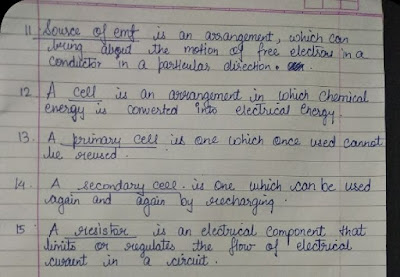 11. Source of emf is an arrangement, which can
bring about the motion of free electrons in a
conductor in a particular direction.
12. A cell is an arrangement in which chemical
energy is converted into electrical energy.
13. A primary cell is one which once used cannot
be reused.
14. A secondary cell is one which can be used
again and again by recharging.
15. A resistor is an electrical component that
limits or regulates the flow of electrical
current in a circuit.